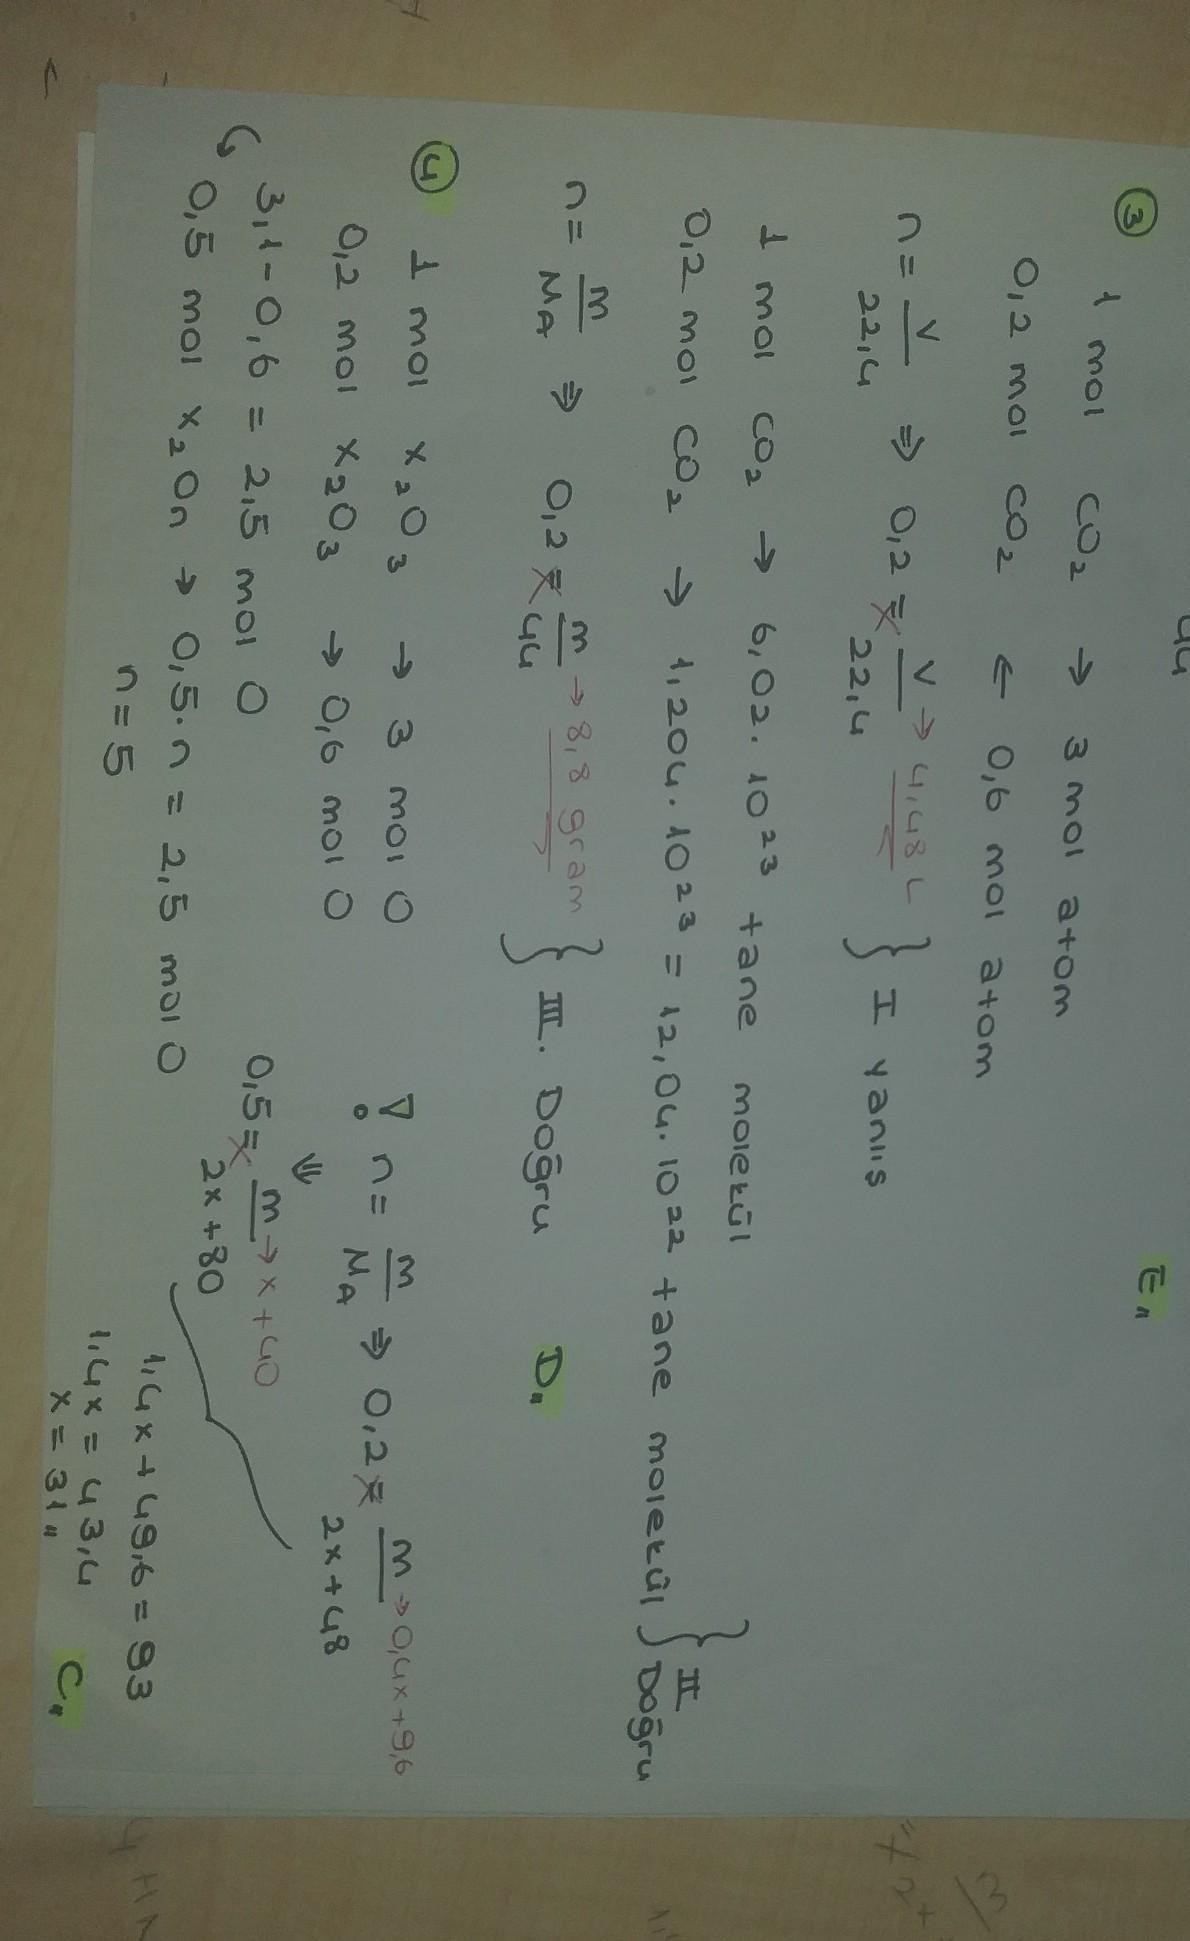 44
E,,
③ 1 mol CO₂ → 3 mol atom
0,2 mol CO₂ ← 0,6 mol atom
n = V/22,4 ⇒ 0,2 = V/22,4 → 4,48 L } I yanlıs
1 mol CO₂ → 6,02.10²³ tane molekül
0,2 mol CO₂ → 1,204.10²³ = 12,04.10²² tane molekül } II Doğru
n = m/MA ⇒ 0,2 = m/44 → 8,8 gram } III. Doğru D,,
④ 1 mol X₂O₃ → 3 mol O
0,2 mol X₂O₃ → 0,6 mol O
3,1 - 0,6 = 2,5 mol O
↳ 0,5 mol X₂On → 0,5.n = 2,5 mol O
n = 5
! n = m/MA ⇒ 0,2 = m/2x+48 → 0,4x+9,6
⇓
0,5 = m/2x+80 → x+40
1,4x + 49,6 = 93
1,4x = 43,4
x = 31,, C,,